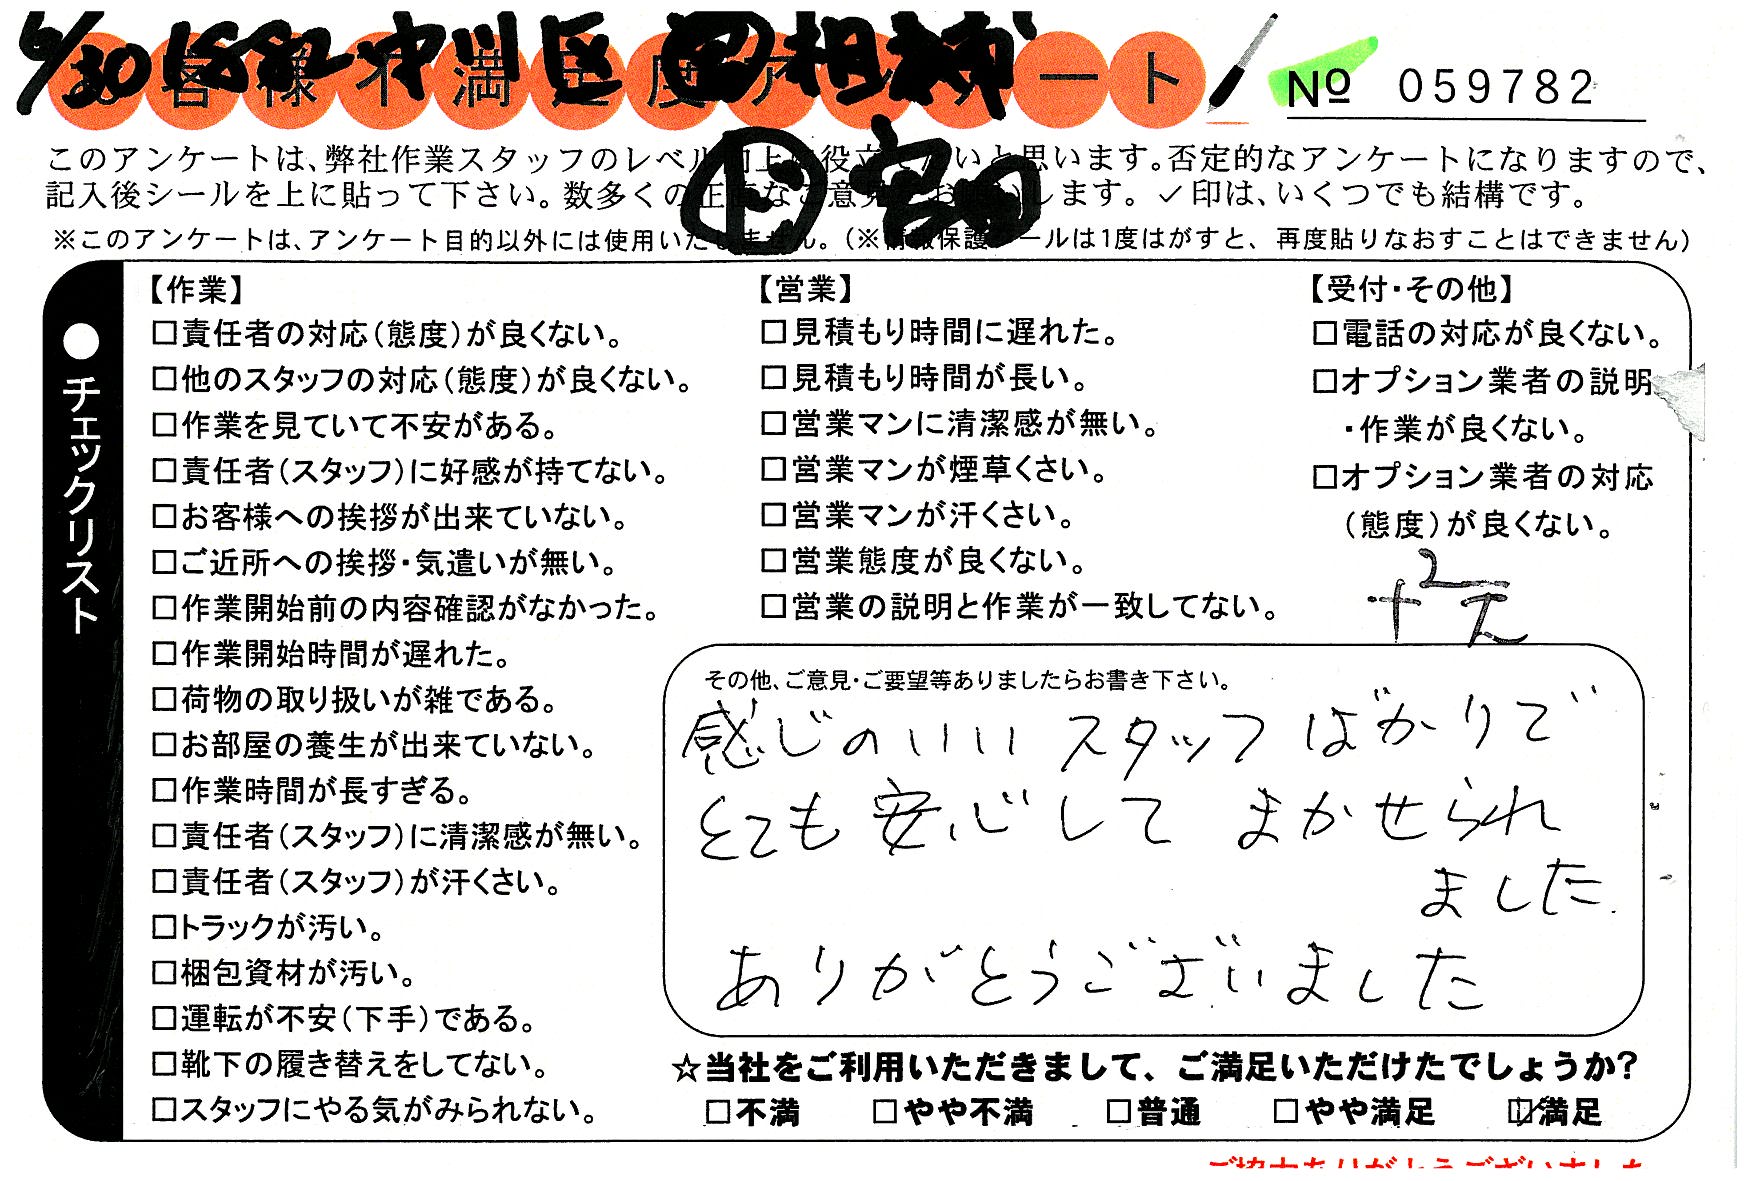 6/30 中川区
お客様不満足度アンケート
No 059782
このアンケートは、弊社作業スタッフのレベル向上に役立てたいと思います。否定的なアンケートになりますので、
記入後シールを上に貼って下さい。数多くの正直なご意見をお願いします。✓印は、いくつでも結構です。
※このアンケートは、アンケート目的以外には使用いたしません。(※情報保護シールは1度はがすと、再度貼りなおすことはできません)
●チェックリスト
【作業】
□責任者の対応(態度)が良くない。
□他のスタッフの対応(態度)が良くない。
□作業を見ていて不安がある。
□責任者(スタッフ)に好感が持てない。
□お客様への挨拶が出来ていない。
□ご近所への挨拶・気遣いが無い。
□作業開始前の内容確認がなかった。
□作業開始時間が遅れた。
□荷物の取り扱いが雑である。
□お部屋の養生が出来ていない。
□作業時間が長すぎる。
□責任者(スタッフ)に清潔感が無い。
□責任者(スタッフ)が汗くさい。
□トラックが汚い。
□梱包資材が汚い。
□運転が不安(下手)である。
□靴下の履き替えをしてない。
□スタッフにやる気がみられない。
【営業】
□見積もり時間に遅れた。
□見積もり時間が長い。
□営業マンに清潔感が無い。
□営業マンが煙草くさい。
□営業マンが汗くさい。
□営業態度が良くない。
□営業の説明と作業が一致してない。
【受付・その他】
□電話の対応が良くない。
□オプション業者の説明
・作業が良くない。
□オプション業者の対応
(態度)が良くない。
その他、ご意見・ご要望等ありましたらお書き下さい。
感じのいいスタッフばかりで
とても安心してまかせられ
ました
ありがとうございました
☆当社をご利用いただきまして、ご満足いただけたでしょうか?
□不満 □やや不満 □普通 □やや満足 ☑満足
ご協力ありがとうございました